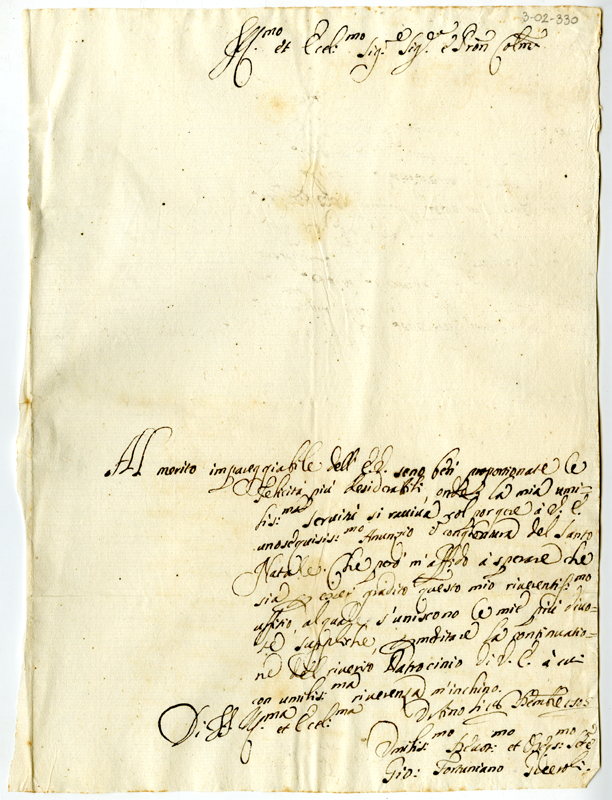 3-02-330
Ill.mo et Ecc.mo Sig.e Sig.e e Pron Colmo
Al merito impareggiabile dell' E.V. sono ben proportionate le
felicità più desiderabili, onde la mia umi-
lis:ma servitù si ravviva col porgere à V.E.
un osequiosis:mo Anunzio congiontura del Santo
Natale. Che però m'affido à sperare che
sia gradito questo mio riverentis:mo
uffitio, al quale s'uniscono le mie più divo-
te suppliche, meritare la continuatio-
ne del riverito Patrocinio di V.E. à cui
con umilis:ma riverenza m'inchino.
Di V.E. Ill.ma et Ecc.ma
Xbre
Umilis:mo et Oss:mo
Gio: Fortuniano